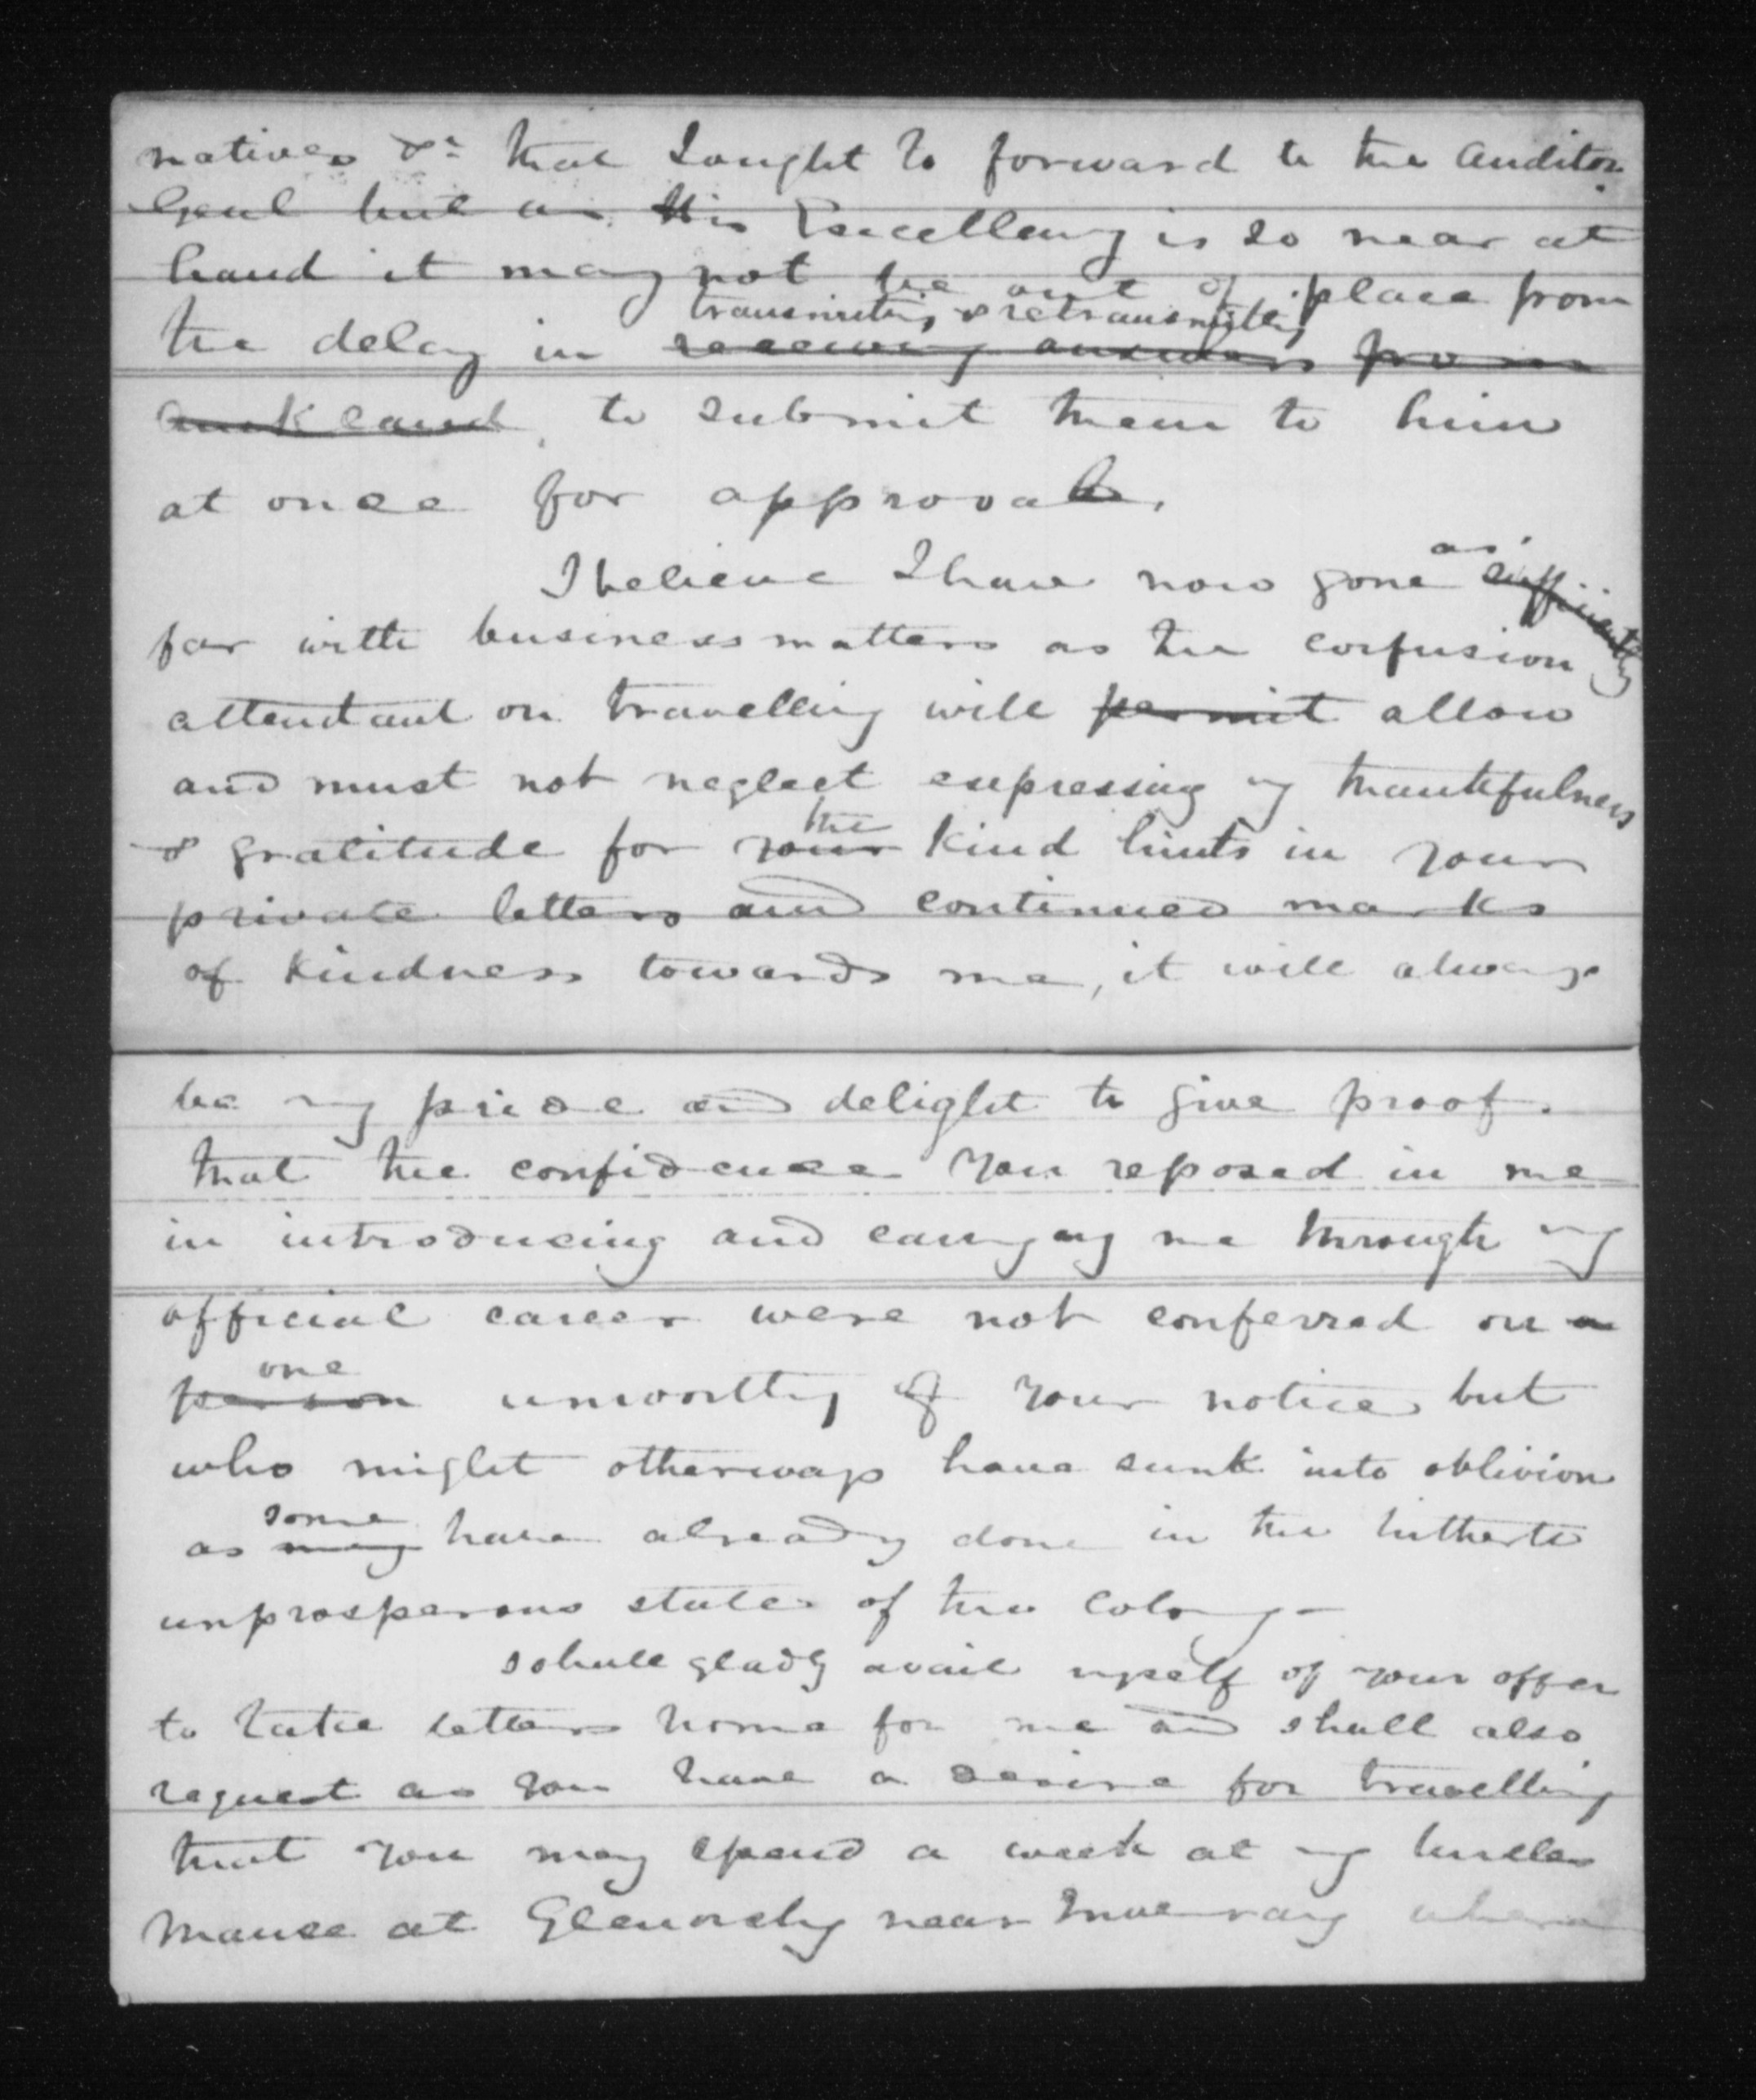 natives &c that I ought to forward to the Auditor
Genl but as His Excellency is so near at
hand it may not be out of place from
transmitting & retransmitting
the delay in receiving answers from
Auckland, to submit them to him
at once for approval.
as
I believe I have now gone sufficiently
far with business matters as the confusion
attendant on travelling will permit allow
and must not neglect expressing my thankfulness
the
& gratitude for your kind hints in your
private letters and continued marks
of kindness towards me, it will always
be my pride and delight to give proof
that the confidence you reposed in me
in introducing and carrying me through my
official career were not conferred on a
one
person unworthy of your notice but
who might otherways have sunk into oblivion
some
as many have already done in the hitherto
unprosperous state of the Colony
I shall gladly avail myself of your offer
to take letters home for me and shall also
request as you have a desire for travelling
that you may spend a week at my
Manse at Glenorchy near Inveraray where